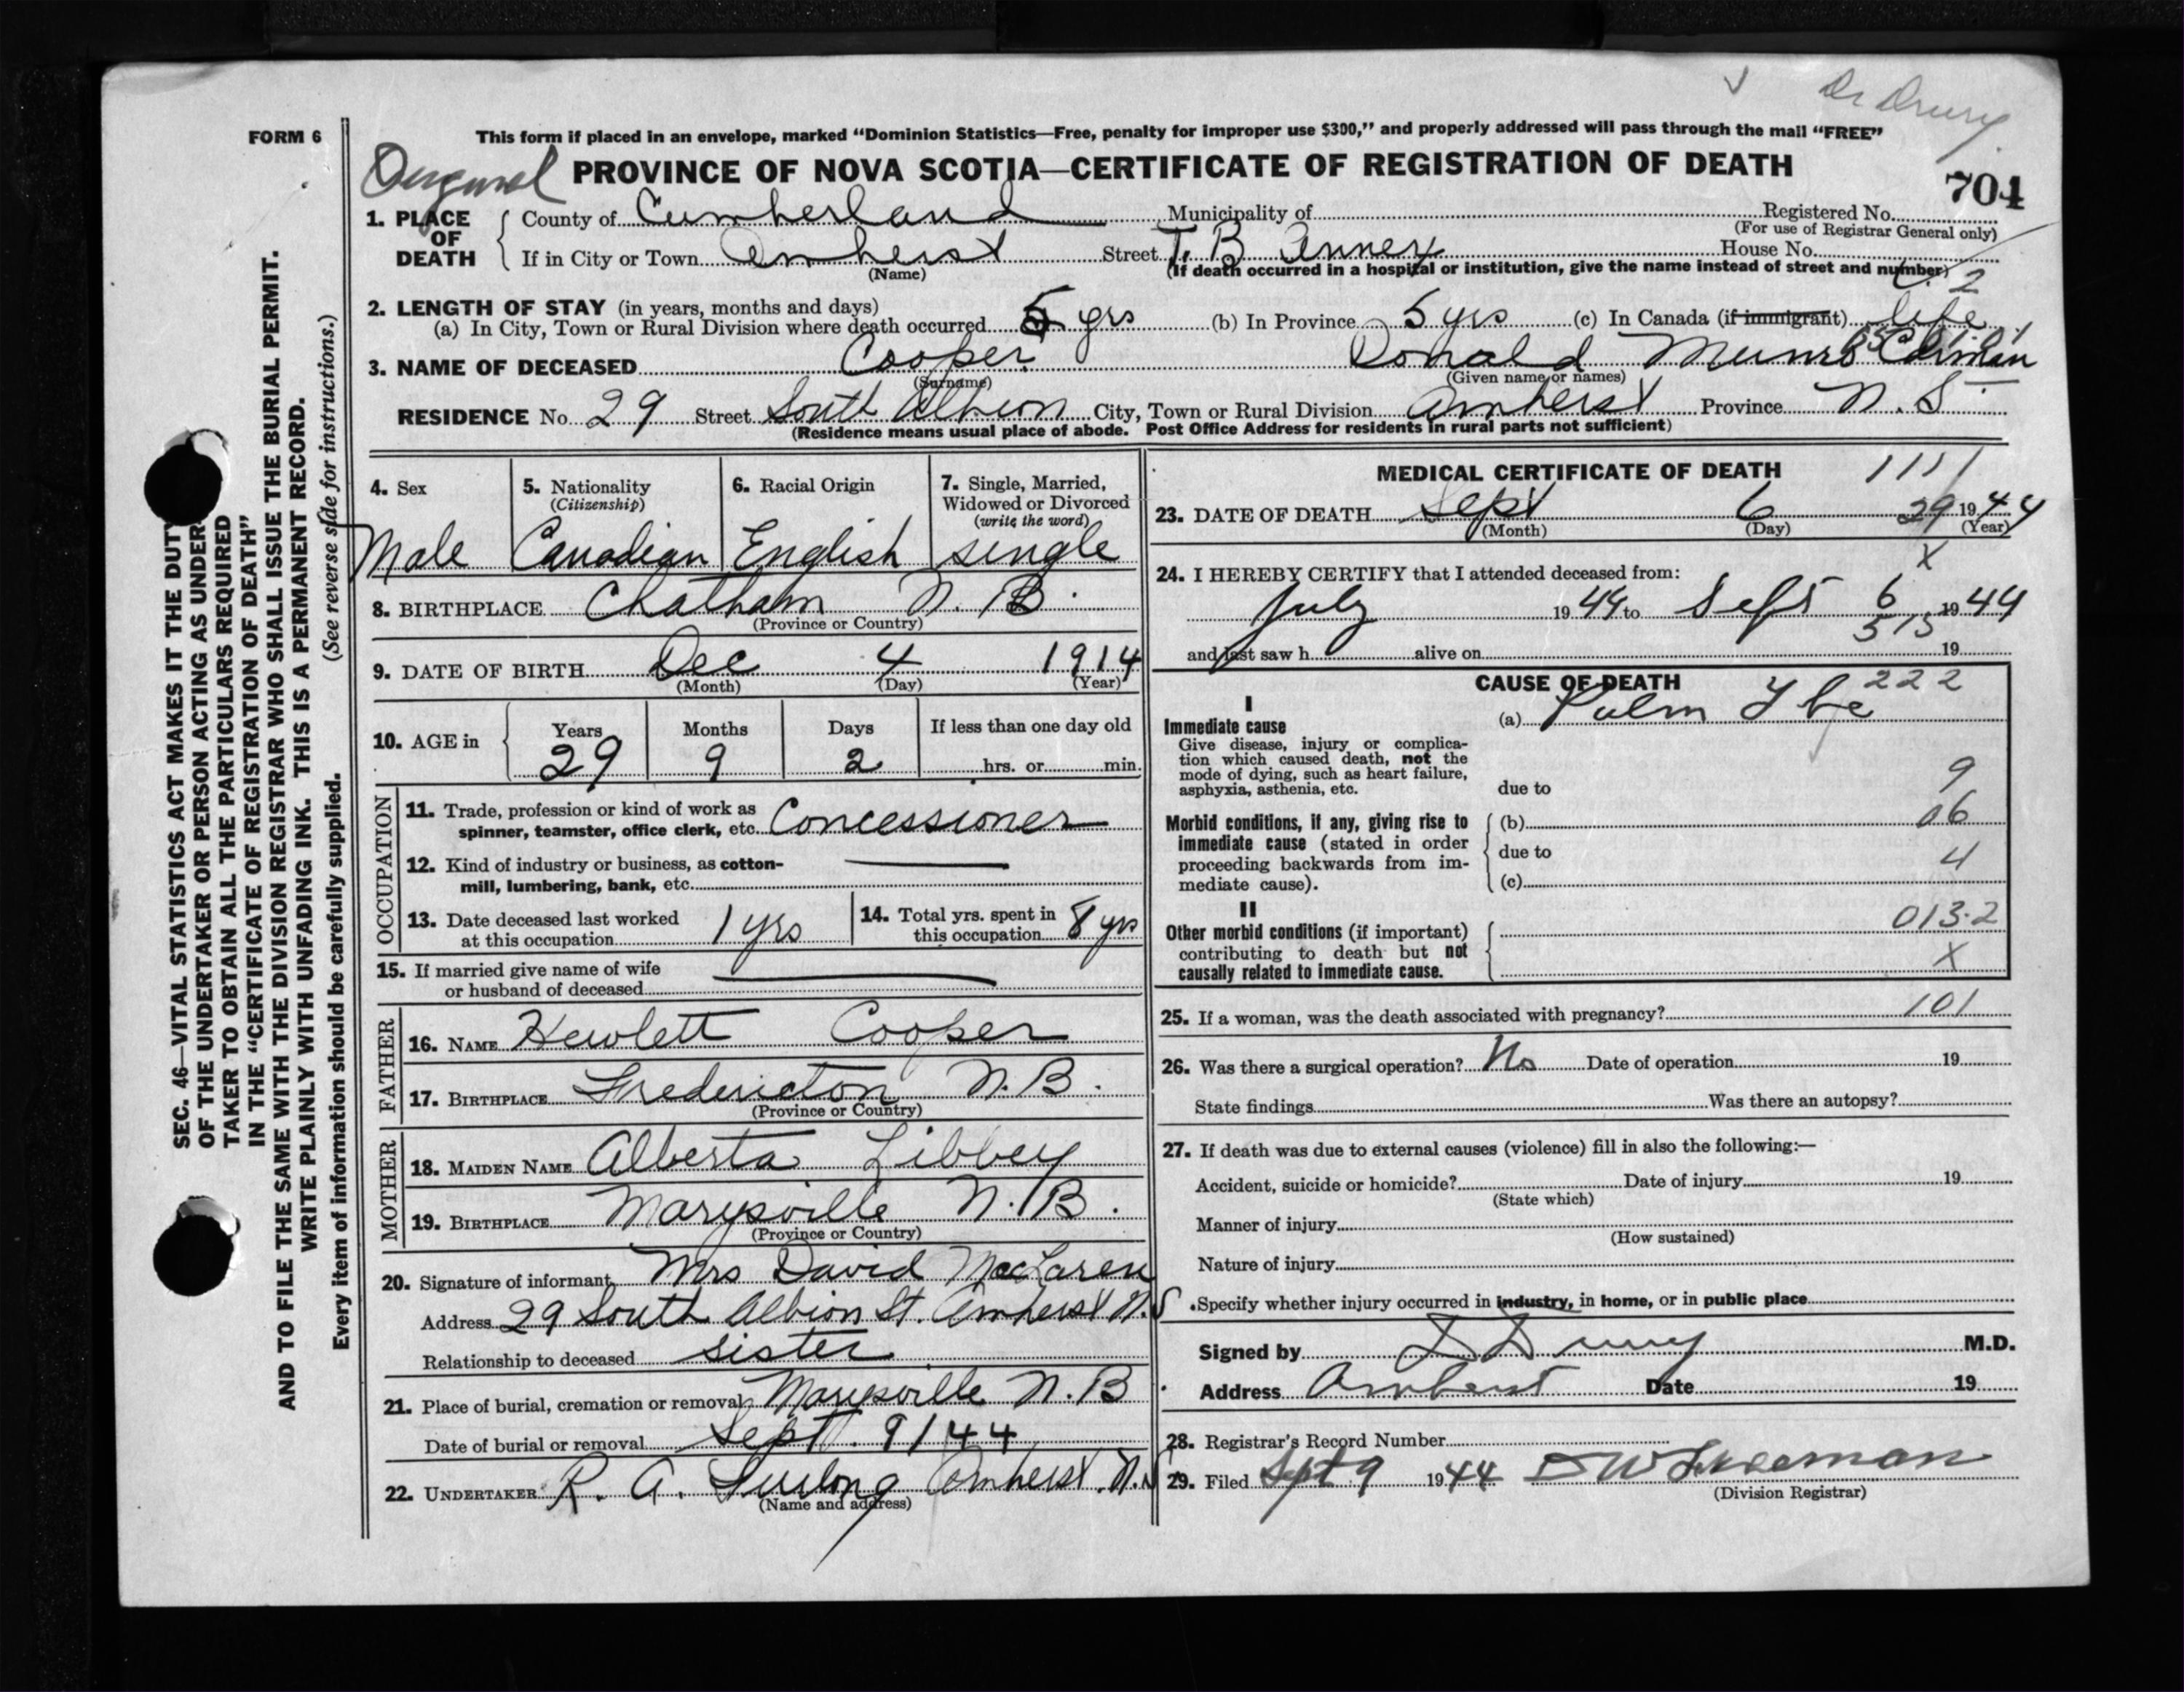 Dr Drury
FORM 6
This form if placed in an envelope, marked “Dominion Statistics—Free, penalty for improper use $300,” and properly addressed will pass through the mail “FREE”
Original PROVINCE OF NOVA SCOTIA—CERTIFICATE OF REGISTRATION OF DEATH
704
1. PLACE OF DEATH
County of Cumberland Municipality of Registered No.
(For use of Registrar General only)
If in City or Town Amherst Street T. B Annex House No.
(Name) (If death occurred in a hospital or institution, give the name instead of street and number)
2. LENGTH OF STAY (in years, months and days)
(a) In City, Town or Rural Division where death occurred 5 yrs (b) In Province 5 yrs (c) In Canada (if immigrant) life
3. NAME OF DECEASED Cooper Donald Munro
(Surname) (Given name or names)
RESIDENCE No. 29 Street South Albion City, Town or Rural Division Amherst Province N. S
(Residence means usual place of abode. Post Office Address for residents in rural parts not sufficient)
4. Sex
Male
5. Nationality
(Citizenship)
Canadian
6. Racial Origin
English
7. Single, Married,
Widowed or Divorced
(write the word)
single
8. BIRTHPLACE Chatham N. B.
(Province or Country)
9. DATE OF BIRTH Dec 4 1914
(Month) (Day) (Year)
10. AGE in Years Months Days If less than one day old
29 9 2 hrs. or min.
OCCUPATION
11. Trade, profession or kind of work as
spinner, teamster, office clerk, etc. Concessioner
12. Kind of industry or business, as cotton-
mill, lumbering, bank, etc.
13. Date deceased last worked
at this occupation 1 yrs
14. Total yrs. spent in
this occupation 8 yrs
15. If married give name of wife
or husband of deceased
FATHER
16. NAME Hewlett Cooper
17. BIRTHPLACE Fredericton N. B.
(Province or Country)
MOTHER
18. MAIDEN NAME Alberta Libbey
19. BIRTHPLACE Marysville N. B.
(Province or Country)
20. Signature of informant Mrs David MacLaren
Address 29 South Albion St. Amherst N. S.
Relationship to deceased sister
21. Place of burial, cremation or removal Marysville N. B.
Date of burial or removal Sept. 9/44
22. UNDERTAKER R. A. Furlong Amherst. N. S
(Name and address)
MEDICAL CERTIFICATE OF DEATH 1111
23. DATE OF DEATH Sept 6 29 1944
(Month) (Day) (Year)
X
24. I HEREBY CERTIFY that I attended deceased from:
July 1944 to Sept 6 1944
515
and last saw h alive on 19
CAUSE OF DEATH 222
I
Immediate cause (a) Pulm Tbc
Give disease, injury or complica-
tion which caused death, not the
mode of dying, such as heart failure,
asphyxia, asthenia, etc. due to 9
Morbid conditions, if any, giving rise to (b) 06
immediate cause (stated in order due to
proceeding backwards from im- 4
mediate cause). (c)
II
Other morbid conditions (if important) 013.2
contributing to death but not
causally related to immediate cause. X
25. If a woman, was the death associated with pregnancy? 101
26. Was there a surgical operation? No Date of operation 19
State findings Was there an autopsy?
27. If death was due to external causes (violence) fill in also the following:—
Accident, suicide or homicide? Date of injury 19
(State which)
Manner of injury
(How sustained)
Nature of injury
Specify whether injury occurred in industry, in home, or in public place
Signed by D Drury M.D.
Address Amherst Date 19
28. Registrar's Record Number
29. Filed Sept 9 1944
(Division Registrar)
SEC. 46—VITAL STATISTICS ACT MAKES IT THE DUTY
OF THE UNDERTAKER OR PERSON ACTING AS UNDER-
TAKER TO OBTAIN ALL THE PARTICULARS REQUIRED
IN THE “CERTIFICATE OF REGISTRATION OF DEATH”
AND TO FILE THE SAME WITH THE DIVISION REGISTRAR WHO SHALL ISSUE THE BURIAL PERMIT.
WRITE PLAINLY WITH UNFADING INK. THIS IS A PERMANENT RECORD.
Every item of information should be carefully supplied. (See reverse side for instructions.)